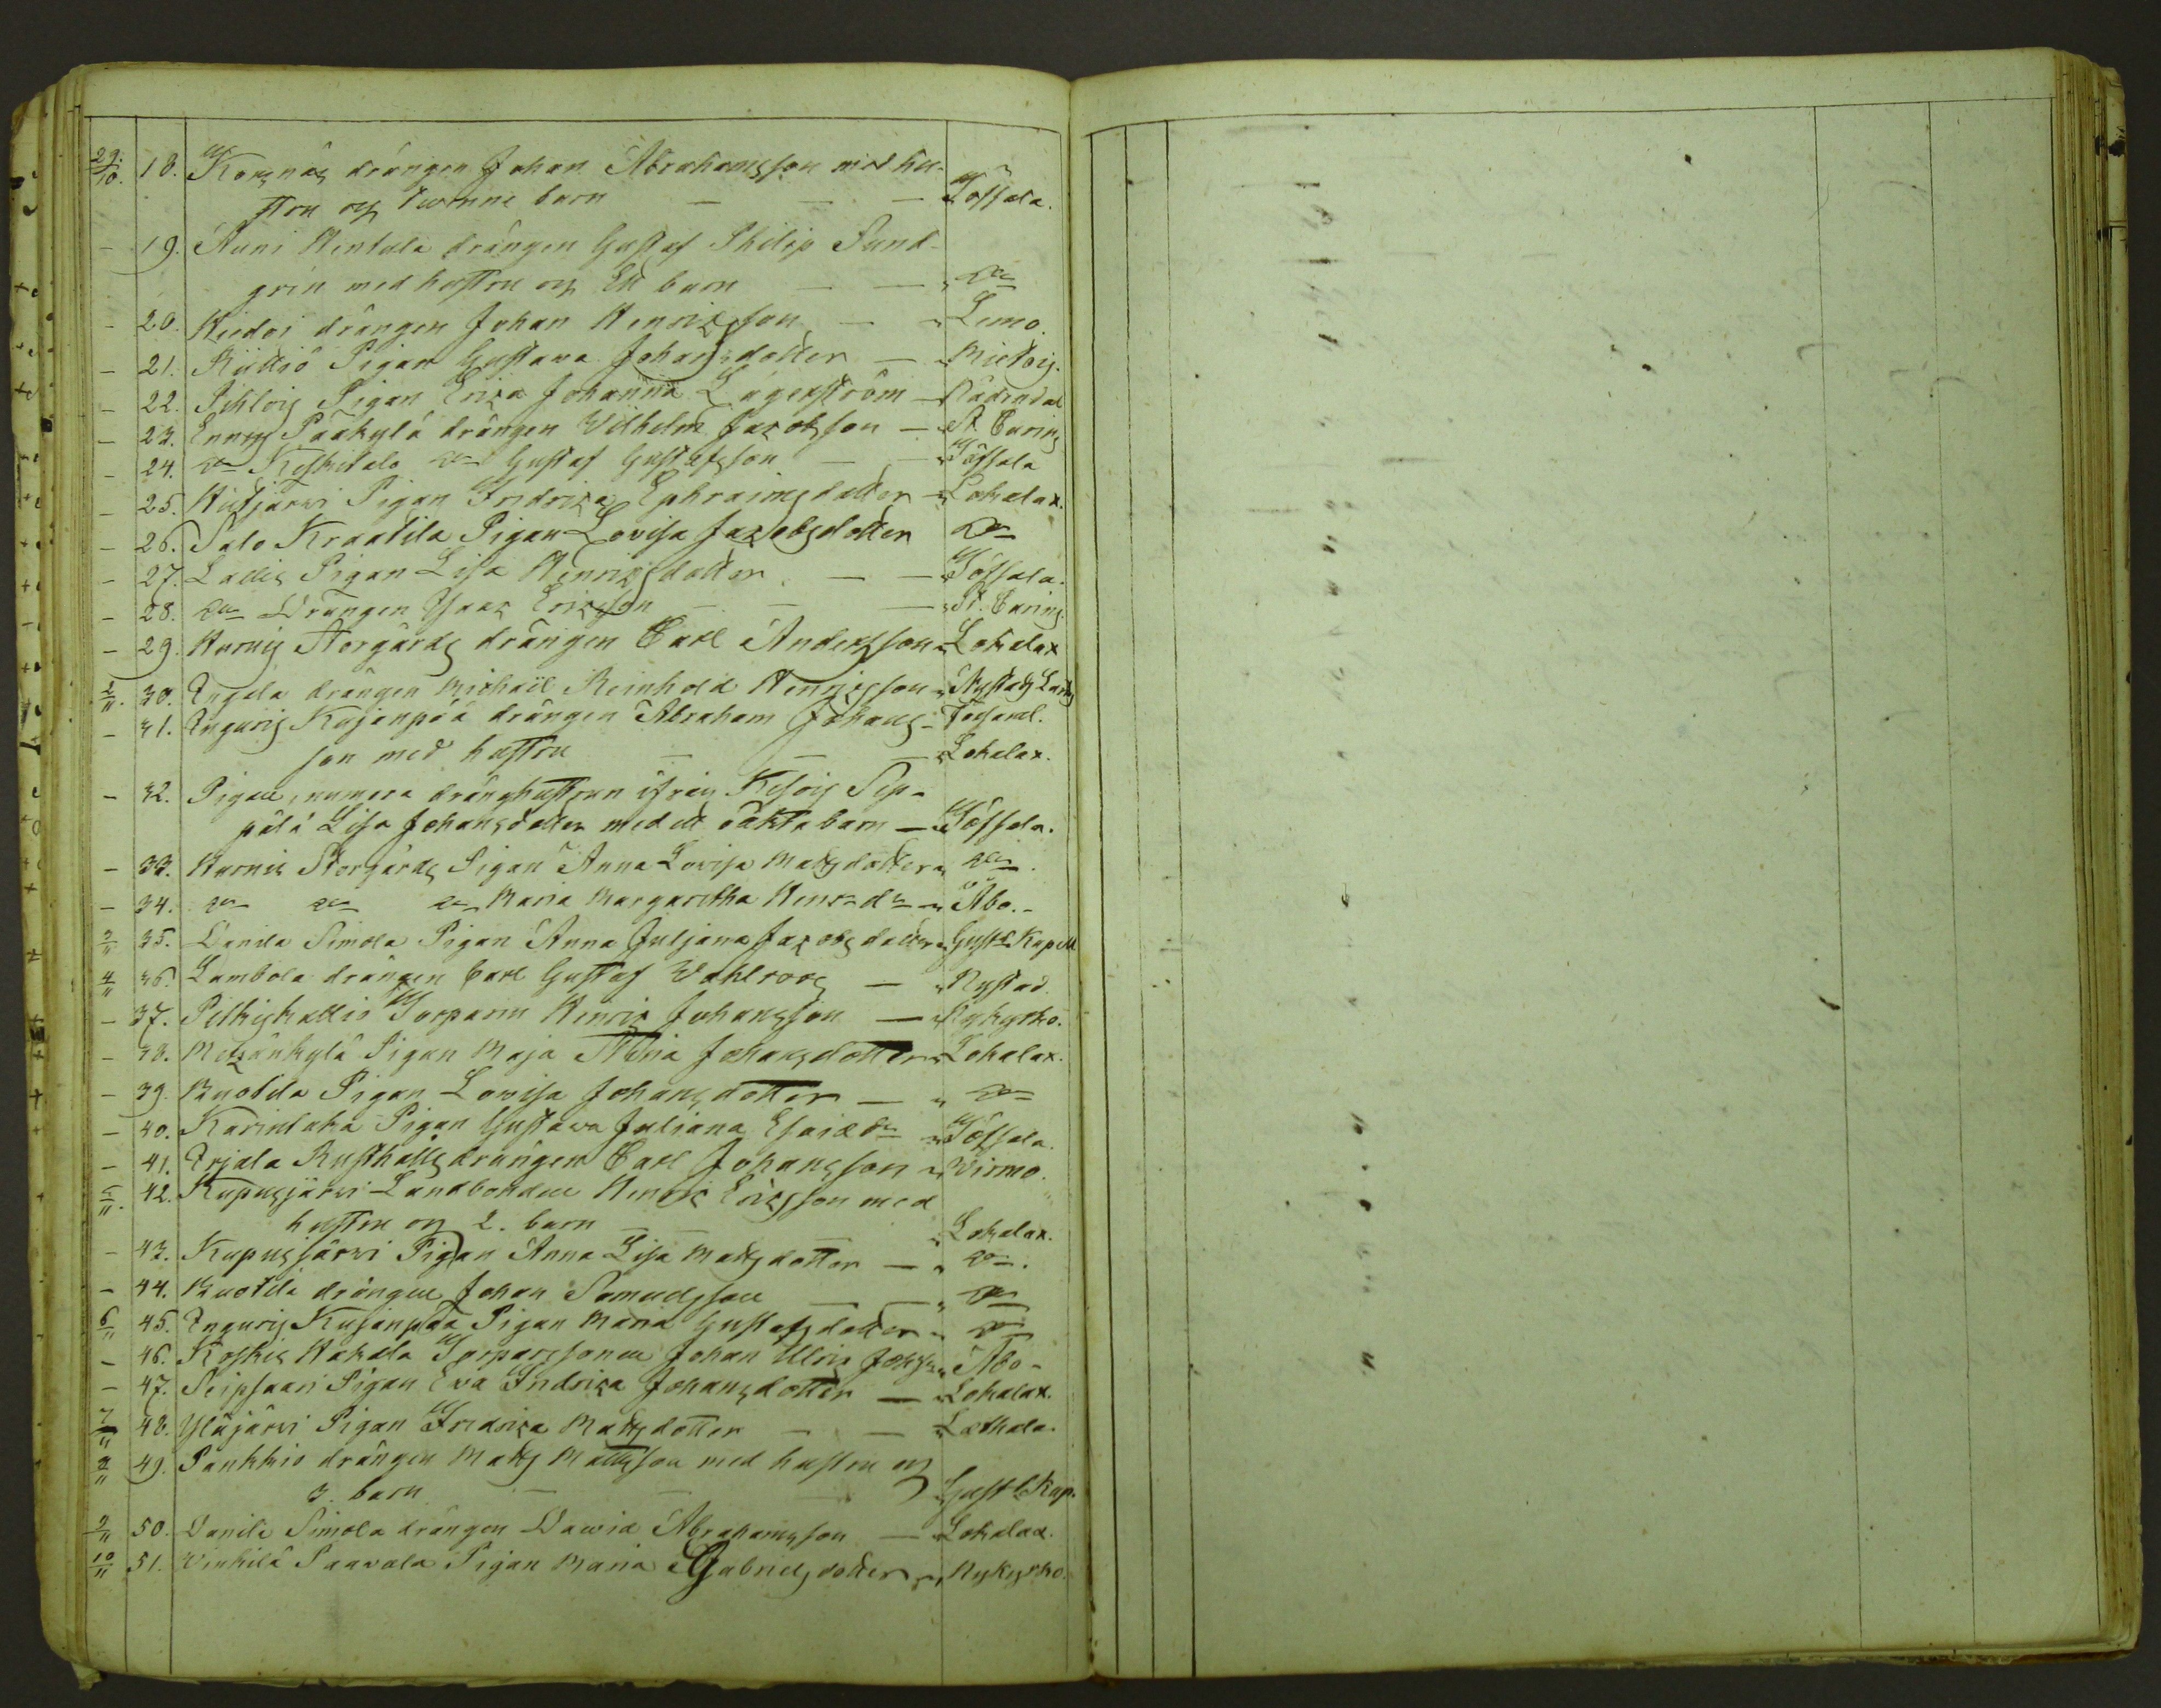 29/10. 18. Korsnäs drängen Johan Abrahamsson med hu-
stru och twenne barn — — — Töfsala.
— 19. Auni Uentula drängen Gustaf Philip Sund-
grén med hustru och Ett barn — — „ Do
— 20. Hiedoi drängen Johan Henricsson — „ Lemo.
— 21. Riittiö Pigan Gustava Johansdotter — „ Mietois.
— 22. Pihlois Pigan Erica Johanna Lägerström — Nådendal
— 23. Ennis Pääkylä drängen Wilhelm Jacobsson — St Carins
— 24. Do Keskitalo Do Gustaf Gustafsson — — „ Töfsala
— 25. Pigan Fredrica Ephraimsdotter — „ Lokalax.
— 26. Salo Kraatila Pigan Lovisa Jacobsdotter Do
— 27. Lallis Pigan Lisa Henricsdotter — — „ Töfsala.
— 28. Do Drängen Isaac Ericsson — — — „ St. Carins
— 29. Hurnis Storgårds drängen Carl Andersson „ Lokalax
2/11. 30. Ingela drängen Michaël Reinhold Henricsson „ Nystads Landsf
— 31. Inguris Kujanpää drängen Abraham Johans- Församl.
son med hustru — — — „ Lokalax.
— 32. Pigan, numera dränghustrun ifrån Kesois Sep-
pälä Lisa Johansdotter med ett oäkta barn — „ Töfsala.
— 33. Hurnis Storgårds Pigan Anna Lovisa Matsdotter „ Do.
— 34. Do Do Do Maria Margaretha Henrsdr — „ Åbo.
3/11 35. Danila Simola Pigan Anna Juljana Jacobsdotter „ Gustl. Kapell
4/11 36. Lambola drängen Carl Gustaf Wahlroos — „ Nystad.
— 37. Pitkiskallio Torparen Henric Johansson — „ Nykyrko.
— 38. Metzänkylä Pigan Maja Stina Johansdotter „ Lokalax.
— 39. Ruotila Pigan Lovisa Johansdotter — „ Do
— 40. Karintaka Pigan Gustava Juliana Esaiædr „ Töfsala.
— 41. Irjala Rusthålls drängen Carl Johansson „ Wirmo.
5/11. 42. Kupusjärvi Landbonden Henric Ericsson med
hustru och 2. barn — — „ Lokalax.
— 43. Kupusjärvi Pigan Anna Lisa Matsdotter — „ Do.
— 44. Ruotila drängen Johan Samuelsson — — „ Do
6/11 45. Inguris Kujanpää Pigan Maria Gustafsdotter „ Do
— 46. Koskis Hakala Torparesonen Johan Ulric Johsson „ Åbo —
— 47. Seipsaari Pigan Eva Fredrica Johansdotter — „ Lokalax.
7/11 48. Yläjärvi Pigan Fredrica Matsdotter — — „ Letthala.
8/11 49. Pankkio drängen Matts Mattsson med hustru och
3. barn — — — „ Gustl. Kap.
9/11 50. Danila Simola drängen David Abrahamsson — „ Lokalax.
10/11 51. Winkilä Paavola Pigan Maria Gabrielsdotter „ Nykyrko.